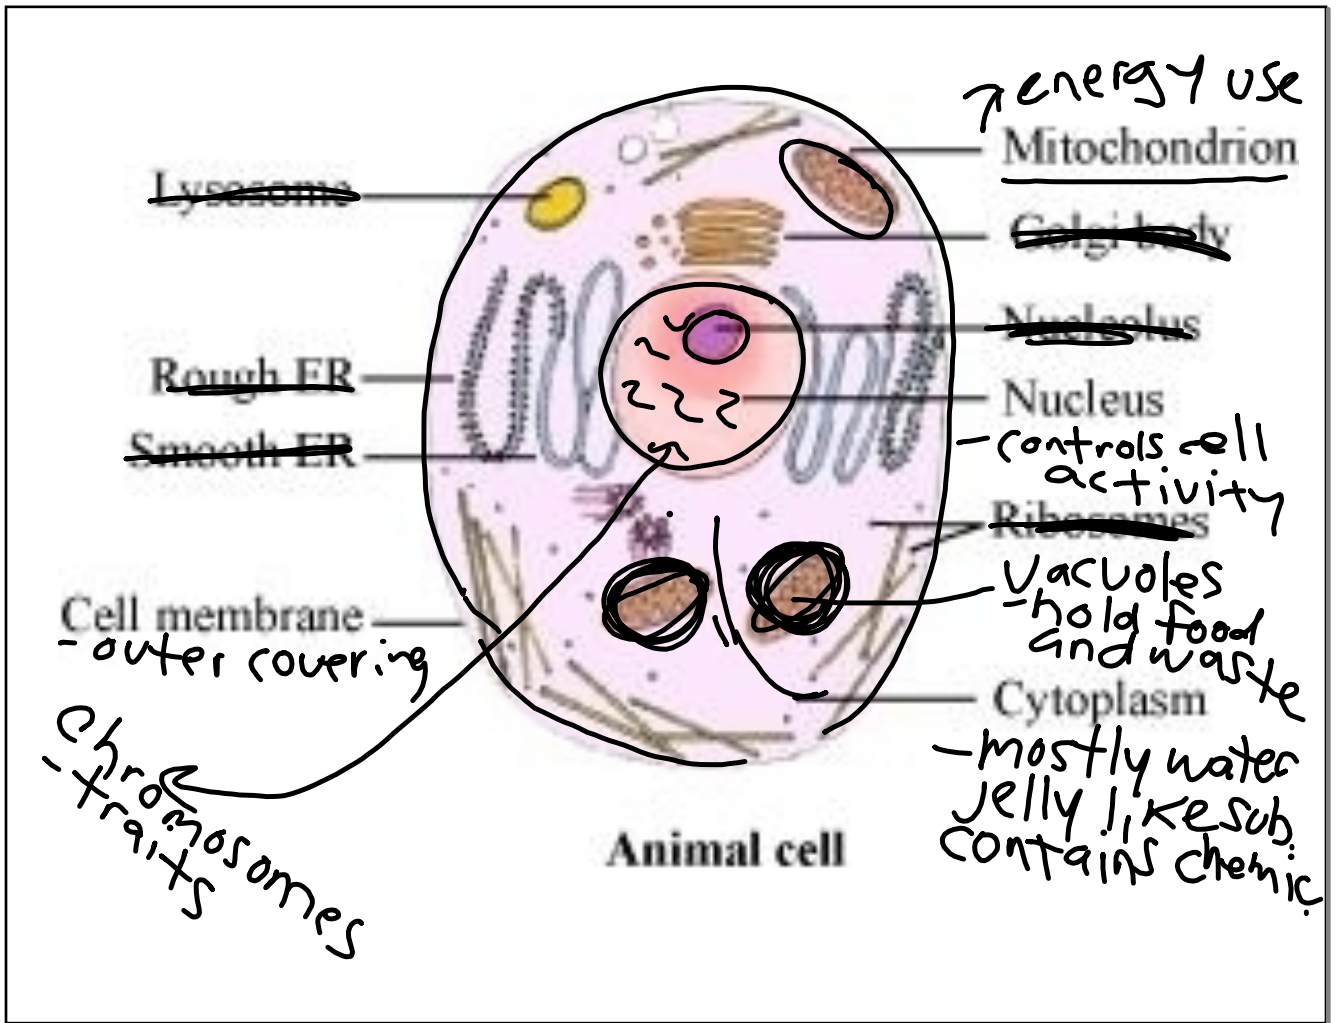 energy use
Mitochondrion
Lysosome
Golgi body
Nucleolus
Rough ER
Nucleus
- controls cell
activity
Smooth ER
Ribosomes
Vacuoles
- hold food
and waste
Cell membrane
- outer covering
Cytoplasm
- mostly water
jelly like sub.
contains chemic.
Chromosomes
- traits
Animal cell